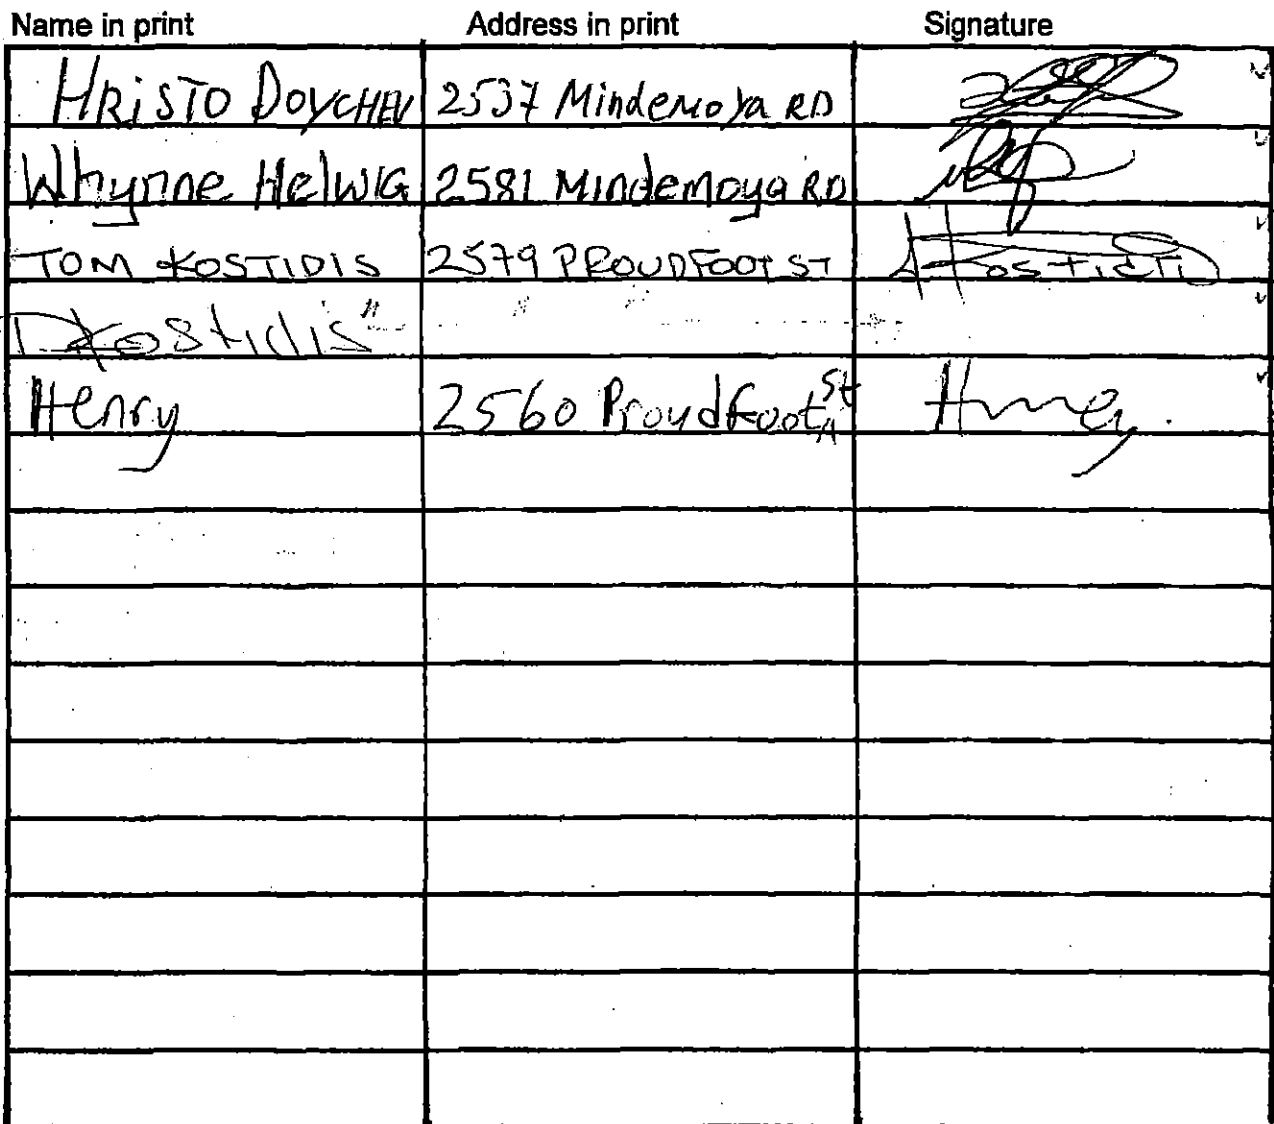 Name in print Address in print Signature
HRiSTO DOYCHEV 2537 Mindemoya RD
Whynne HelwIG 2581 Mindemoya RD
TOM KOSTIDIS 2579 PROUDFOOT ST Kostidis
D Kostidis " "
Henry 2560 Proudfoot St Henry.